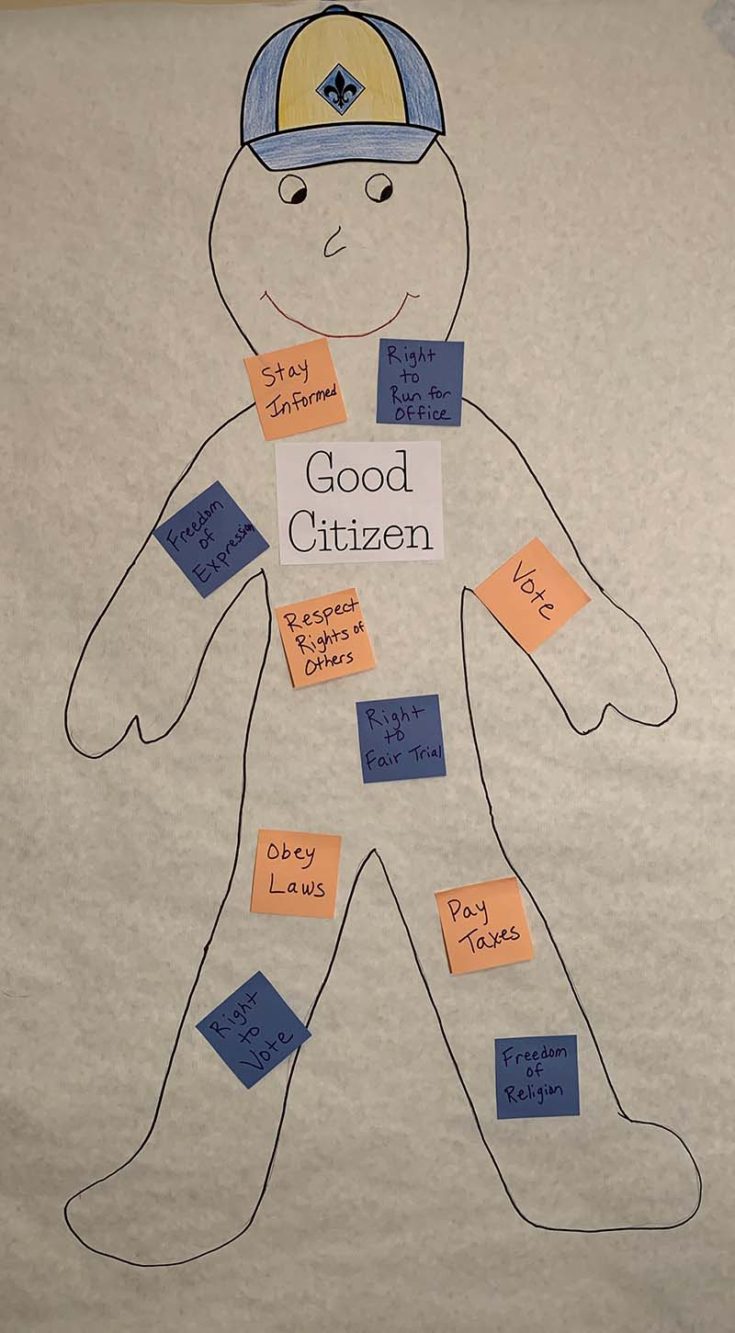 Stay
Informed
Right
to
Run for
Office
Good
Citizen
Freedom
of
Expression
Vote
Respect
Rights of
Others
Right
to
Fair Trial
Obey
Laws
Pay
Taxes
Right
to
Vote
Freedom
of
Religion